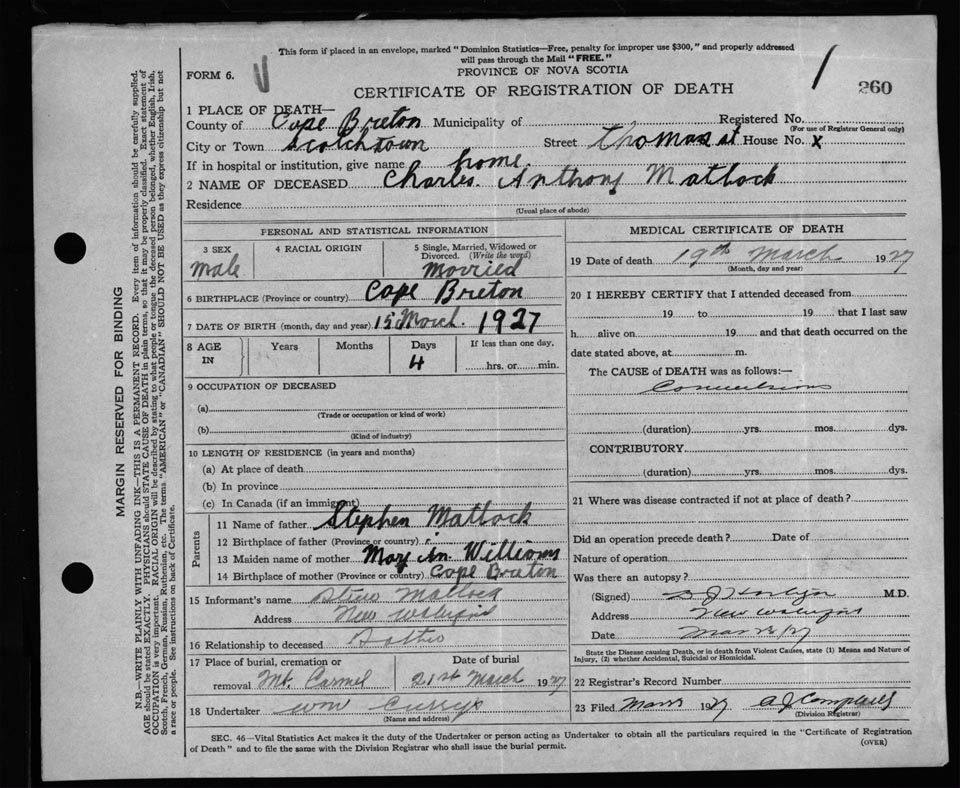 This form if placed in an envelope, marked "Dominion Statistics—Free, penalty for improper use $300," and properly addressed
will pass through the Mail "FREE."
FORM 6.
PROVINCE OF NOVA SCOTIA
CERTIFICATE OF REGISTRATION OF DEATH
260
1 PLACE OF DEATH—
County of Cape Breton Municipality of Registered No.
(For use of Registrar General only)
City or Town Scotchtown Street Thomas st House No. x
If in hospital or institution, give name home
2 NAME OF DECEASED Charles Anthony Matlock
Residence
(Usual place of abode)
PERSONAL AND STATISTICAL INFORMATION
3 SEX 4 RACIAL ORIGIN 5 Single, Married, Widowed or
Divorced. (Write the word)
Male Married
6 BIRTHPLACE (Province or country) Cape Breton
7 DATE OF BIRTH (month, day and year) 15 March 1927
8 AGE IN Years Months Days If less than one day,
4 hrs. or min.
9 OCCUPATION OF DECEASED
(a)
(Trade or occupation or kind of work)
(b)
(Kind of industry)
10 LENGTH OF RESIDENCE (in years and months)
(a) At place of death
(b) In province
(c) In Canada (if an immigrant)
Parents
11 Name of father Stephen Matlock
12 Birthplace of father (Province or country)
13 Maiden name of mother Mary An. Williams
14 Birthplace of mother (Province or country) Cape Breton
15 Informant's name Matlock
Address New Waterford
16 Relationship to deceased
17 Place of burial, cremation or Date of burial
removal Mt. Carmel 21st March 1927
18 Undertaker Wm
(Name and address)
MEDICAL CERTIFICATE OF DEATH
19 Date of death 19th March 1927
(Month, day and year)
20 I HEREBY CERTIFY that I attended deceased from
19 to 19 that I last saw
h alive on 19 and that death occurred on the
date stated above, at m.
The CAUSE of DEATH was as follows:—
Convulsions
(duration) yrs. mos. dys.
CONTRIBUTORY
(duration) yrs. mos. dys.
21 Where was disease contracted if not at place of death?
Did an operation precede death? Date of
Nature of operation
Was there an autopsy?
(Signed) M.D.
Address New Waterford
Date
State the Disease causing Death, or in death from Violent Causes, state (1) Means and Nature of
Injury, (2) whether Accidental, Suicidal or Homicidal.
22 Registrar's Record Number
23 Filed 1927 A J Campbell
(Division Registrar)
SEC. 46—Vital Statistics Act makes it the duty of the Undertaker or person acting as Undertaker to obtain all the particulars required in the "Certificate of Registration
of Death" and to file the same with the Division Registrar who shall issue the burial permit.
(OVER)
MARGIN RESERVED FOR BINDING
N.B.—WRITE PLAINLY WITH UNFADING INK—THIS IS A PERMANENT RECORD. Every item of information should be carefully supplied.
AGE should be stated EXACTLY. PHYSICIANS should STATE CAUSE OF DEATH in plain terms, so that it may be properly classified. Exact statement of
OCCUPATION is very important. RACIAL ORIGIN will be described by stating to what people or tongue the deceased person belonged, whether English, Irish,
Scotch, French, German, Russian, Ruthenian, etc. The terms "AMERICAN" or "CANADIAN" SHOULD NOT BE USED as they express citizenship but not
a race or people. See instructions on back of Certificate.